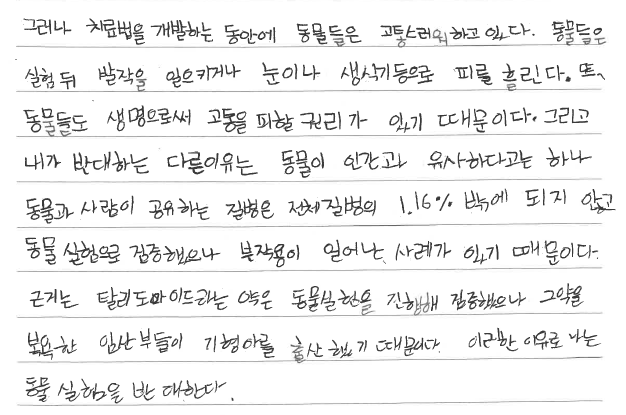 그러나 치료법을 개발하는 동안에 동물들은 고통스러워하고 있다. 동물들은
실험 뒤 발작을 일으키거나 눈이나 생식기등으로 피를 흘린다. 또,
동물들도 생명으로써 고통을 피할 권리가 있기 때문이다. 그리고
내가 반대하는 다른이유는 동물이 인간과 유사하다고는 하나
동물과 사람이 공유하는 질병은 전체질병의 1.16% 밖에 되지 않고
동물 실험으로 검증했으나 부작용이 일어난 사례가 있기 때문이다.
근거는 탈리도마이드라는 약은 동물실험을 진행해 검증했으나 그약을
복용한 임산부들이 기형아를 출산 했기 때문이다. 이러한 이유로 나는
동물 실험을 반대한다.